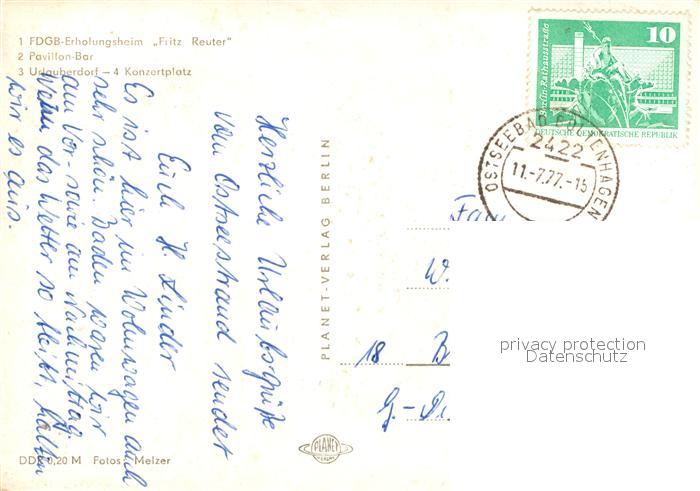 1 FDGB-Erholungsheim „Fritz Reuter"
2 Pavillon-Bar
3 Urlauberdorf – 4 Konzertplatz
Herzliche Urlaubsgrüße
vom Ostseestrand sendet
Euch H. Linder
Es ist hier im Wohnwagen auch
sehr schön. Baden waren wir
am Vor- sowie am Nachmittag
wenn das Wetter so bleibt, halten
wir es aus.
DDR 0,20 M Fotos: Melzer
PLANET-VERLAG BERLIN
PLANET
10
Berlin-Rathausstraße
DEUTSCHE DEMOKRATISCHE REPUBLIK
OSTSEEBAD BOLTENHAGEN
2422
11.-7.77.-15
Fam
W.
18 B
G.-
privacy protection
Datenschutz